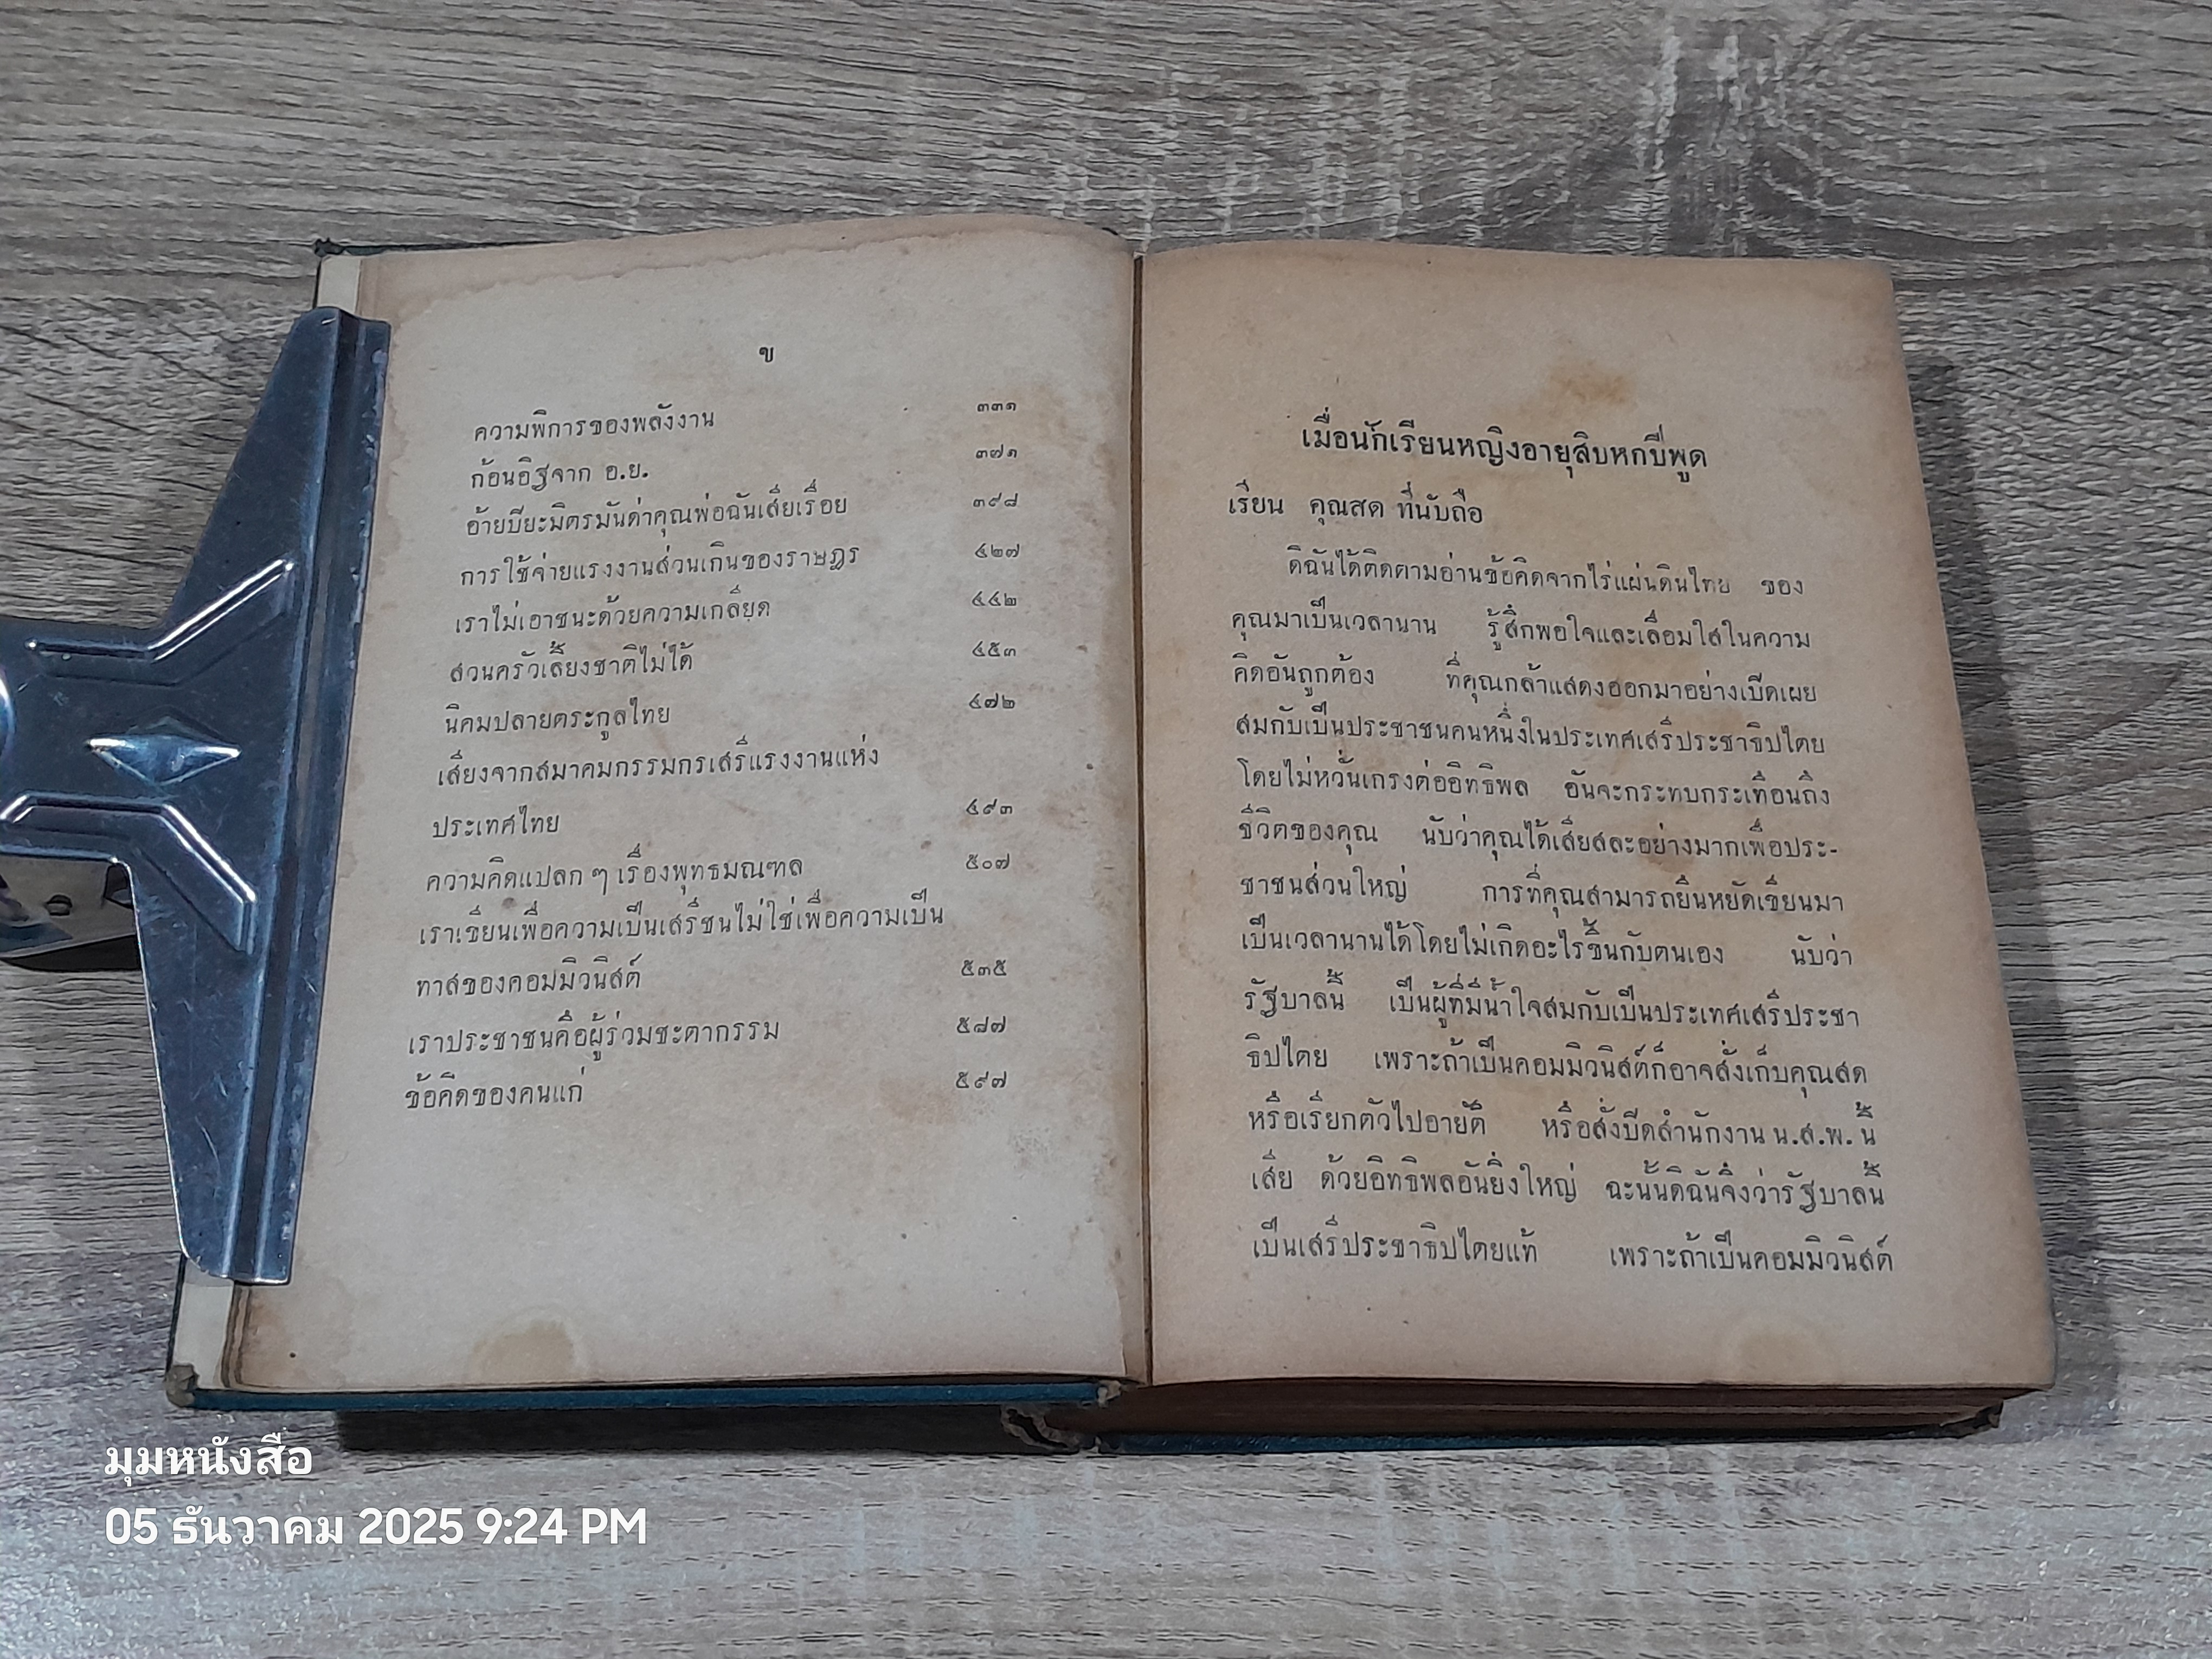 ข
ความพิการของพลังงาน ๓๓๑
ก้อนอิฐจาก อ.ย. ๓๗๑
อ้ายบียะมิตรมันด่าคุณพ่อฉันเสียเรื่อย ๓๙๘
การใช้จ่ายแรงงานส่วนเกินของราษฎร ๔๒๗
เราไม่เอาชนะด้วยความเกลียด ๔๔๒
สวนครัวเลี้ยงชาติไม่ได้ ๔๕๓
นิคมปลายตระกูลไทย ๔๗๒
เสียงจากสมาคมกรรมกรเสรีแรงงานแห่ง
ประเทศไทย ๔๙๓
ความคิดแปลก ๆ เรื่องพุทธมณฑล ๕๐๗
เราเขียนเพื่อความเป็นเสรีชนไม่ใช่เพื่อความเป็น
ทาสของคอมมิวนิสต์ ๕๓๕
เราประชาชนคือผู้ร่วมชะตากรรม ๕๘๗
ข้อคิดของคนแก่ ๕๙๗
เมื่อนักเรียนหญิงอายุสิบหกปีพูด
เรียน คุณสด ที่นับถือ
ดิฉันได้ติดตามอ่านข้อคิดจากไร่แผ่นดินไทย ของ
คุณมาเป็นเวลานาน รู้สึกพอใจและเลื่อมใสในความ
คิดอันถูกต้อง ที่คุณกล้าแสดงออกมาอย่างเปิดเผย
สมกับเป็นประชาชนคนหนึ่งในประเทศเสรีประชาธิปไตย
โดยไม่หวั่นเกรงต่ออิทธิพล อันจะกระทบกระเทือนถึง
ชีวิตของคุณ นับว่าคุณได้เสียสละอย่างมากเพื่อประ-
ชาชนส่วนใหญ่ การที่คุณสามารถยืนหยัดเขียนมา
เป็นเวลานานได้โดยไม่เกิดอะไรขึ้นกับตนเอง นับว่า
รัฐบาลนี้ เป็นผู้ที่มีน้ำใจสมกับเป็นประเทศเสรีประชา
ธิปไตย เพราะถ้าเป็นคอมมิวนิสต์ก็อาจสั่งเก็บคุณสด
หรือเรียกตัวไปอายัติ หรือสั่งปิดสำนักงาน น.ส.พ. นี้
เสีย ด้วยอิทธิพลอันยิ่งใหญ่ ฉะนั้นดิฉันจึงว่ารัฐบาลนี้
เป็นเสรีประชาธิปไตยแท้ เพราะถ้าเป็นคอมมิวนิสต์
มุมหนังสือ
05 ธันวาคม 2025 9:24 PM